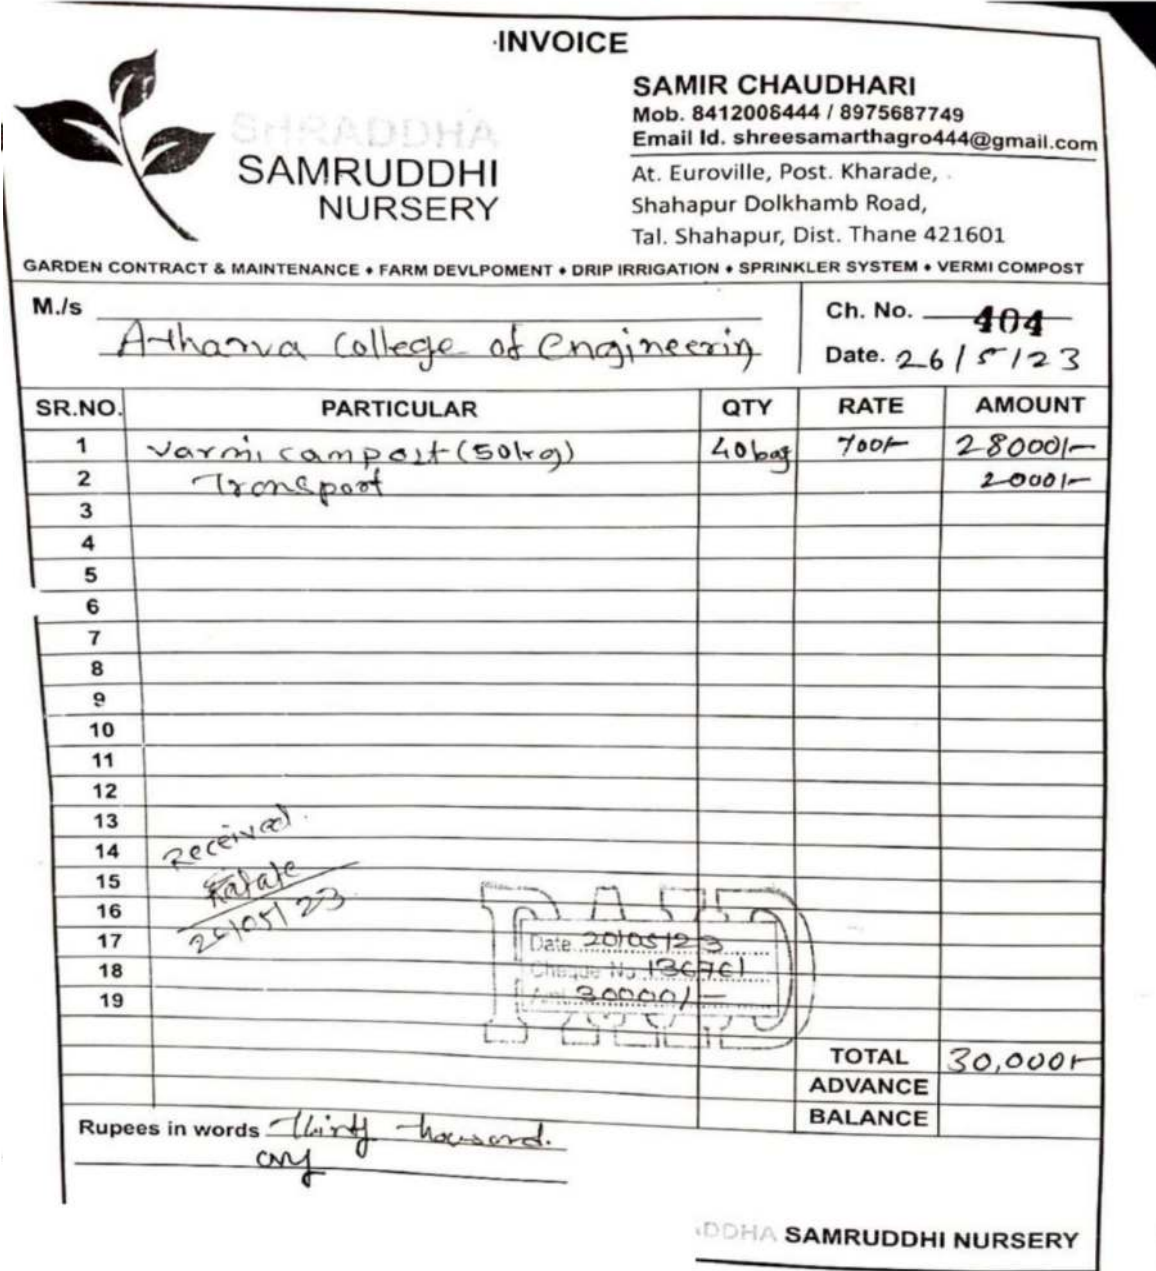 INVOICE
SHRADDHA
SAMRUDDHI
NURSERY
SAMIR CHAUDHARI
Mob. 8412008444 / 8975687749
Email Id. shreesamarthagro444@gmail.com
At. Euroville, Post. Kharade,
Shahapur Dolkhamb Road,
Tal. Shahapur, Dist. Thane 421601
GARDEN CONTRACT & MAINTENANCE • FARM DEVLPOMENT • DRIP IRRIGATION • SPRINKLER SYSTEM • VERMI COMPOST
M./s Atharva College of Engineerin
Ch. No. 404
Date. 26/5/23
SR.NO. PARTICULAR QTY RATE AMOUNT
1 varmi campost (50kg) 40 bag 700/- 28000/-
2 Transport 2000/-
3
4
5
6
7
8
9
10
11
12
13
14
15
16
17
18
19
Received
26/05/23
PAID
Date 20/05/23
Cheque No 136761
30000/-
TOTAL 30,000/-
ADVANCE
BALANCE
Rupees in words Thirty thousand.
only
DDHA SAMRUDDHI NURSERY